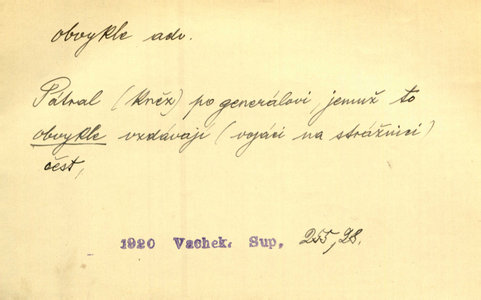 obvykle adv.
Pátral (kněz) po generálovi, jemuž to
obvykle vzdávají (vojáci na strážnici)
čest,
1920 Vachek, Sup, 255, 28.